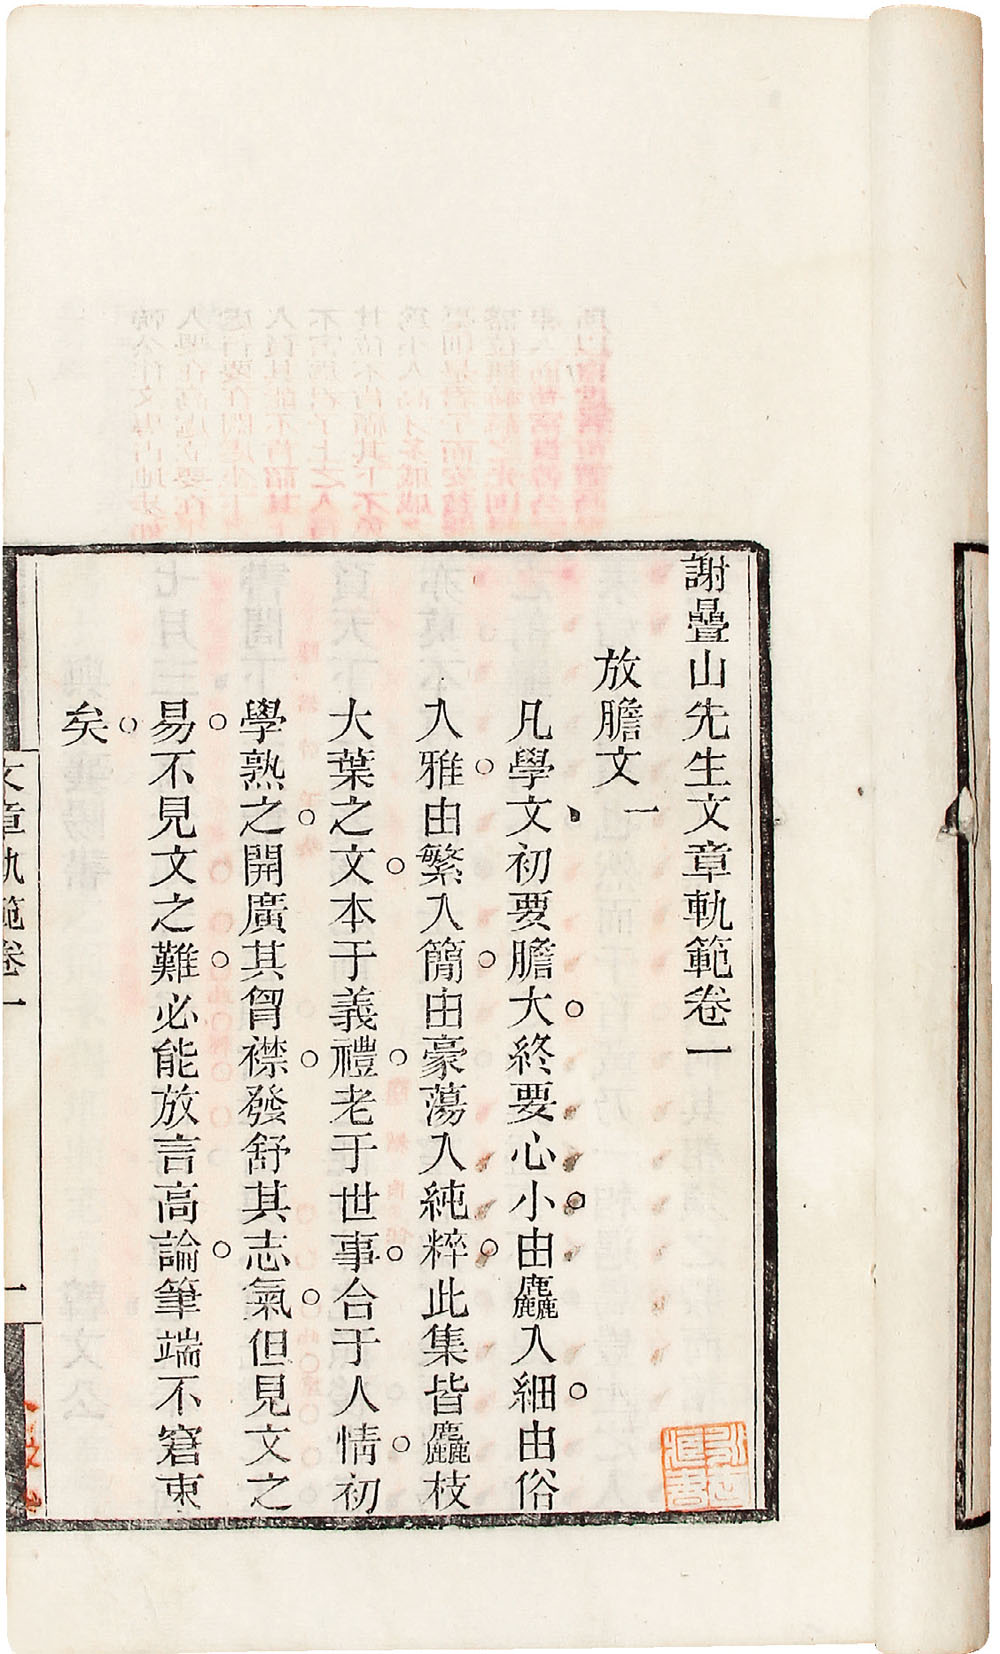 謝疊山先生文章軌範卷一
放膽文一
凡學文初要膽大終要心小由麤入細由俗
入雅由繁入簡由豪蕩入純粹此集皆麤枝
大葉之文本于義禮老于世事合于人情初
學熟之開廣其胷襟發舒其志氣但見文之
易不見文之難必能放言高論筆端不窘束
矣
文章軌範卷一
一